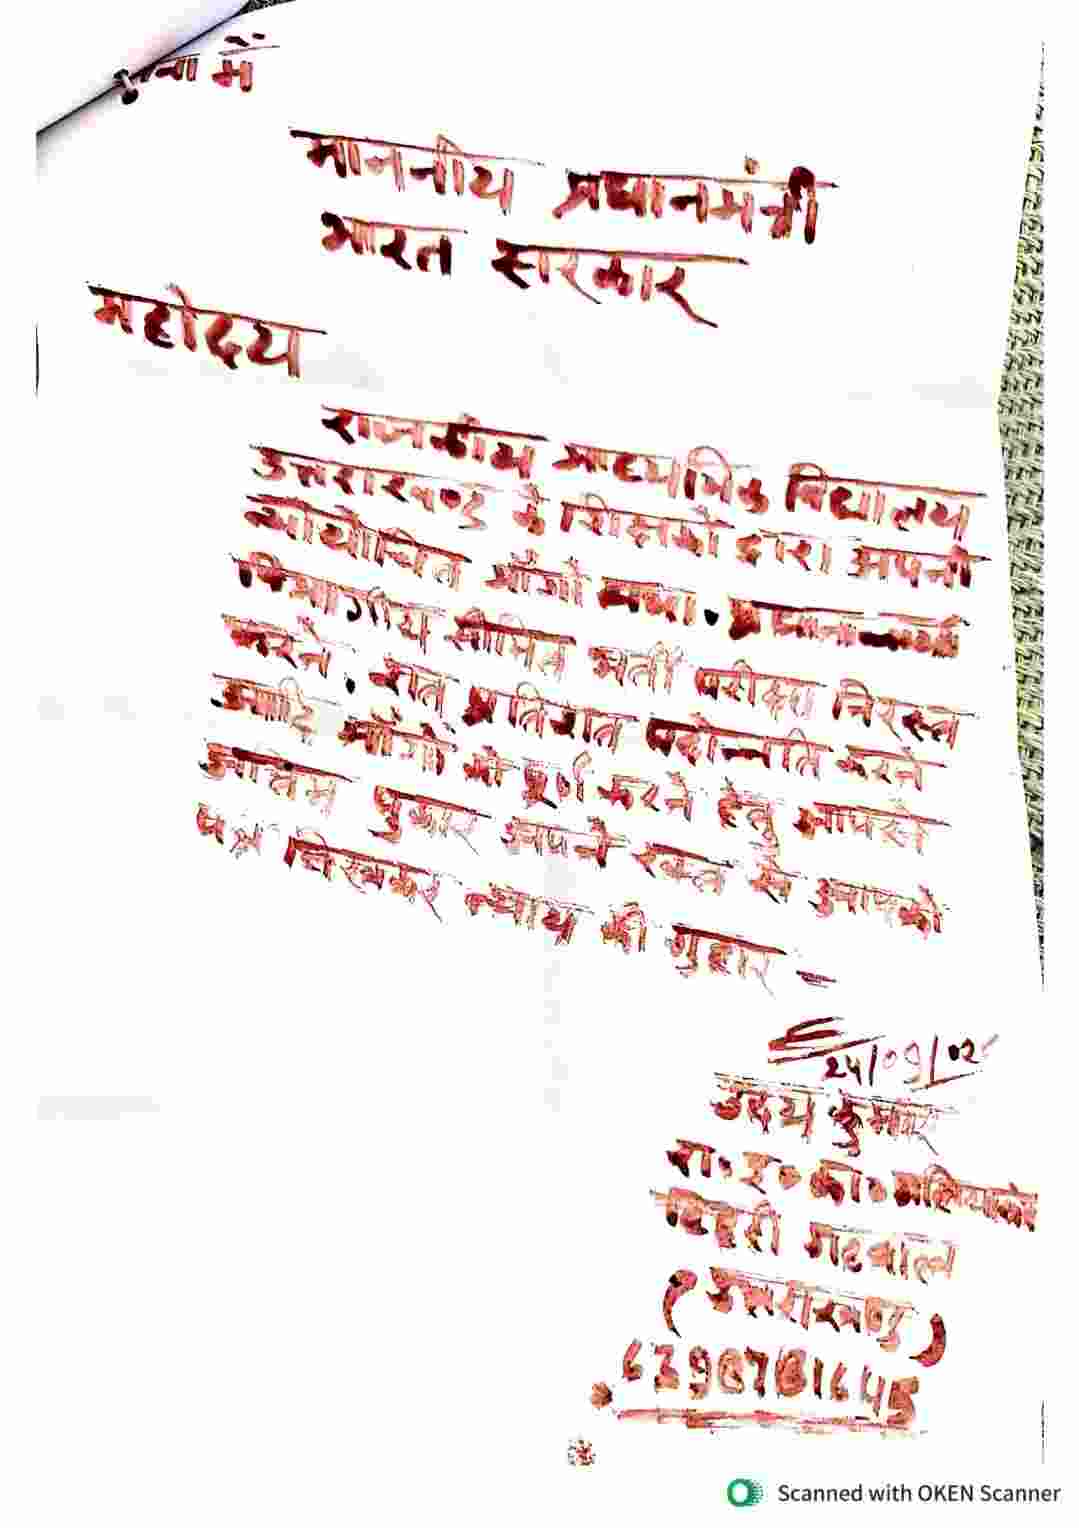 सेवा में
माननीय प्रधानमंत्री
भारत सरकार
महोदय
राजकीय माध्यमिक विद्यालय
उत्तराखण्ड के शिक्षकों द्वारा अपनी
न्यायोचित माँगों यथा • प्रधानाचार्य
विभागीय सीमित भर्ती परीक्षा निरस्त
करने • शत प्रतिशत पदोन्नति करने
आदि माँगों को पूर्ण करने हेतु आपसे
अंतिम पुकार अपने रक्त से आपको
पत्र लिखकर न्याय की गुहार -
24/09/025
उदय कुमार
रा॰ इ॰ का॰
टिहरी गढवाल
(उत्तराखण्ड)
Scanned with OKEN Scanner